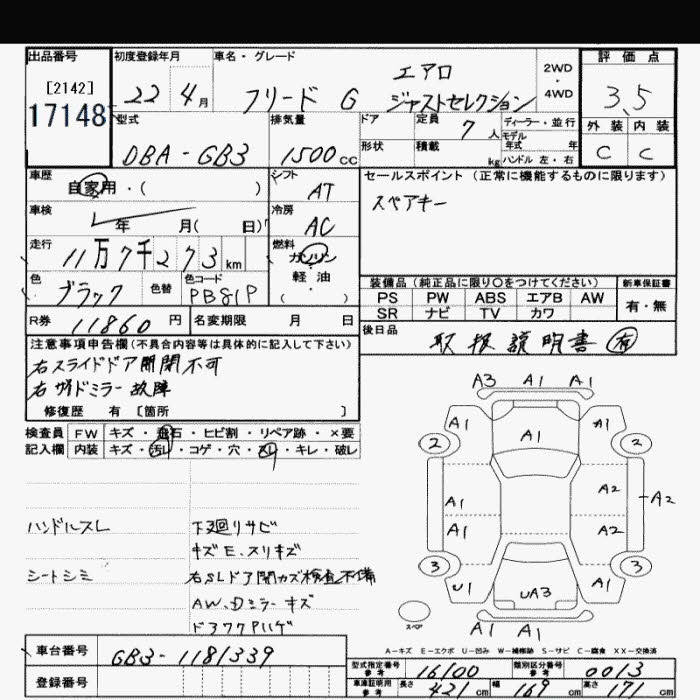 出品番号
[2142]
17148
初度登録年月
22年4月
車名・グレード
フリード G エアロ
ジャストセレクション
2WD
・
4WD
評価点
3.5
外装 内装
C C
型式
DBA-GB3
排気量
1500cc
ドア
形状
定員 7人
積載 kg
ディーラー・並行
モデル
年式 年
ハンドル 左・右
車歴
自家用・( )
シフト
AT
車検
年 月( 日)
冷房
AC
走行
11万7千273km
燃料
ガソリン
軽・油
( )
色
ブラック
色替
色コード
PB81P
R券
11860円
名変期限 月 日
セールスポイント(正常に機能するものに限ります)
スペアキー
装備品(純正品に限り○をつけてください)
PS PW ABS エアB AW
SR ナビ TV カワ
新車保証書
有・無
後日品
取扱説明書 有
注意事項申告欄(不具合内容等は具体的に記入して下さい)
右スライドドア開閉不可
右サイドミラー故障
修復歴 有 [箇所 ]
検査員
記入欄
FW キズ・飛石・ヒビ割・リペア跡・×要
内装 キズ・汚れ・コゲ・穴・スリ・キレ・破レ
ハンドルスレ
シートシミ
下廻りサビ
キズE、スリキズ
右SLドア閉カズ検査不備
AW、Dミラーキズ
ドアノブPハゲ
A3 A1 A1
A1 A1 A1
2 2
A1 A2
A2
A1 A2
3 3
U1 UA3 A1
A1 A1
スペア
A-キズ E-エクボ U-凹み W-補修跡 S-サビ C-腐食 XX-交換済
車台番号
GB3-1181339
登録番号
型式指定番号
参考
16100
類別区分番号
参考
0013
車庫証明用
参考
長さ 421cm 幅 169cm 高さ 171cm